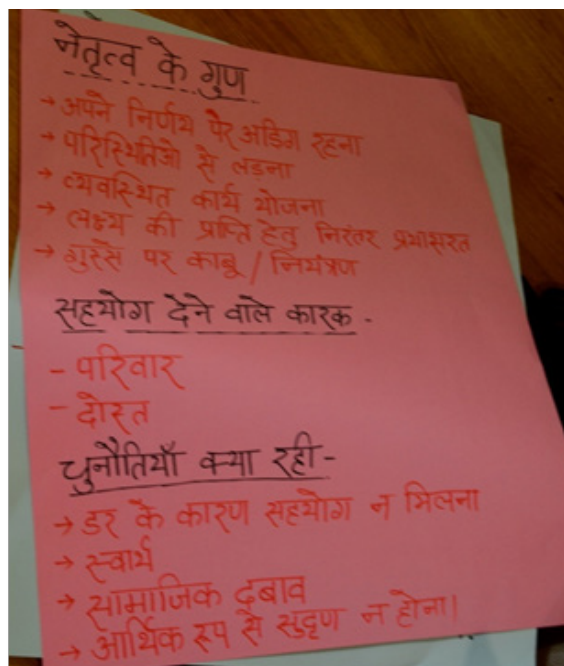 नेतृत्व के गुण
→ अपने निर्णय पर अडिग रहना
→ परिस्थितिओ से लडना
→ व्यवस्थित कार्य योजना
→ लक्ष्य की प्राप्ति हेतु निरंतर प्रयासरत
→ गुस्से पर काबू / नियंत्रण
सहयोग देने वाले कारक -
- परिवार
- दोस्त
चुनौतियाँ क्या रही -
→ डर के कारण सहयोग न मिलना
→ स्वार्थ
→ सामाजिक दबाव
→ आर्थिक रूप से सुदृण न होना।